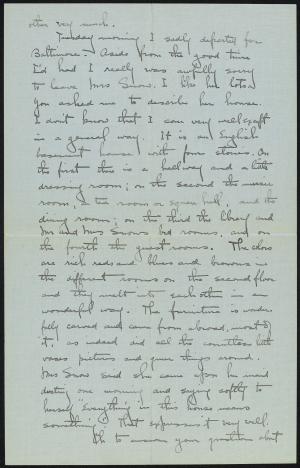 other very much.
Tuesday morning I sadly departed for
Baltimore. Aside from the good time
I'd had I really was awfully sorry
to leave Mrs Snow. I like her lots.
You asked me to describe her house.
I don't know that I can very well except
in a general way. It is an English
basement house with four stories. On
the first there is a hallway and a little
dressing room; on the second the music
room, a tea room or square hall, and the
dining room; on the third the library and
Mr and Mrs Snows bed rooms, and on
the fourth the guest rooms. The colors
are rich reds and blues and browns in
the different rooms on the second floor
and they melt into each other in a
wonderful way. The furniture is wonder-
fully carved and came from abroad, most of
it, as indeed did all the countless little
vases pictures and queer things around.
Mrs Snow said she came upon her maid
dusting one morning and saying softly to
herself "Everything in this house means
something". That expresses it very well.
Oh to answer your question about